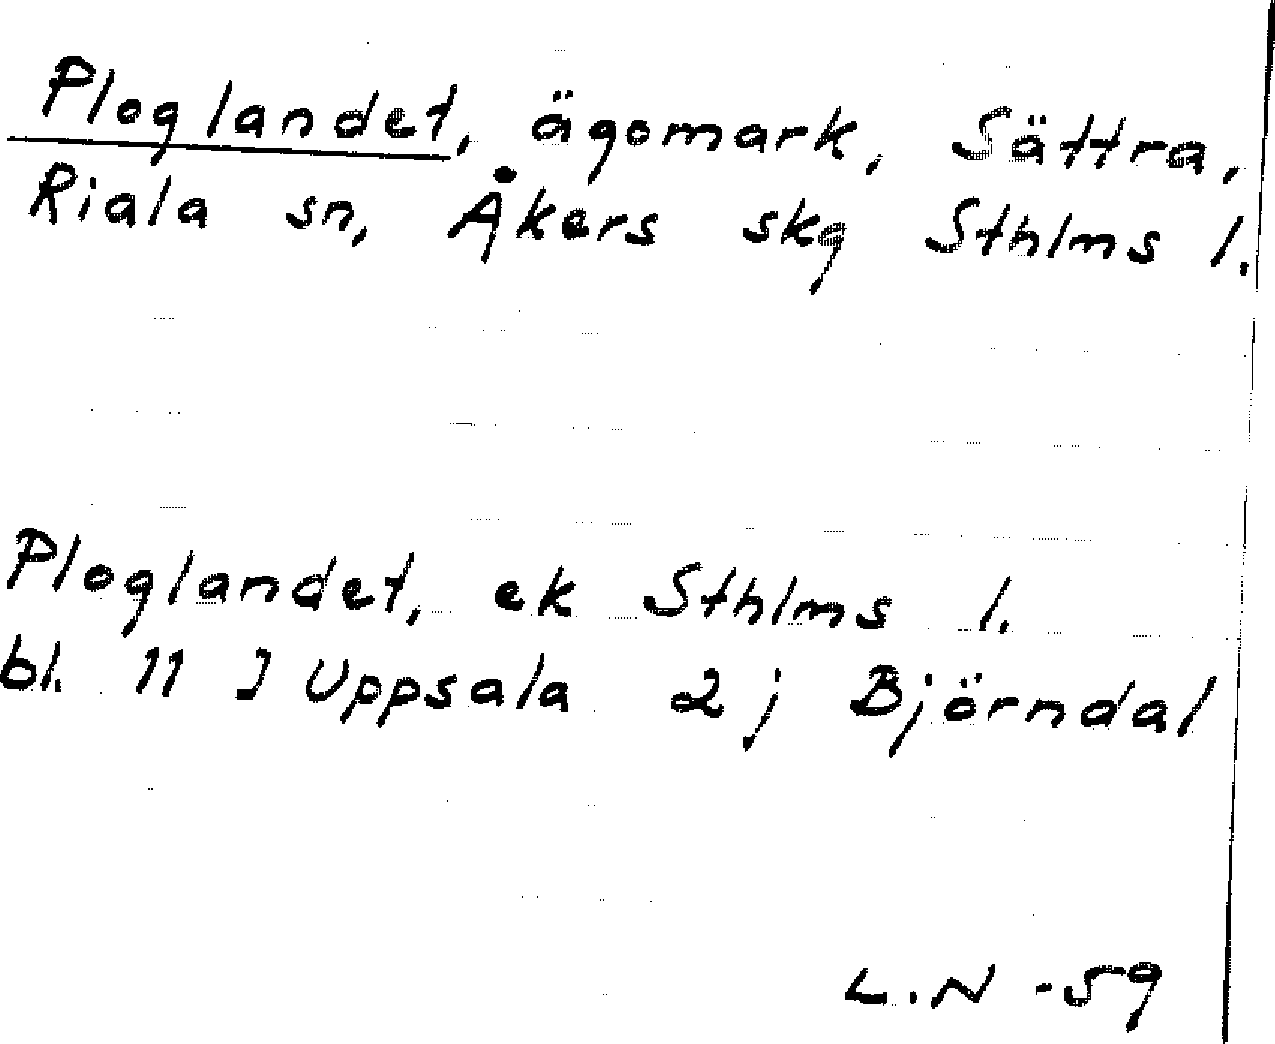 Ploglandet, ägomark, Sättra,
Riala sn, Åkers skg Sthlms l.
Ploglandet, ek Sthlms l.
bl. 11 J Uppsala 2 j Björndal
L.N -59